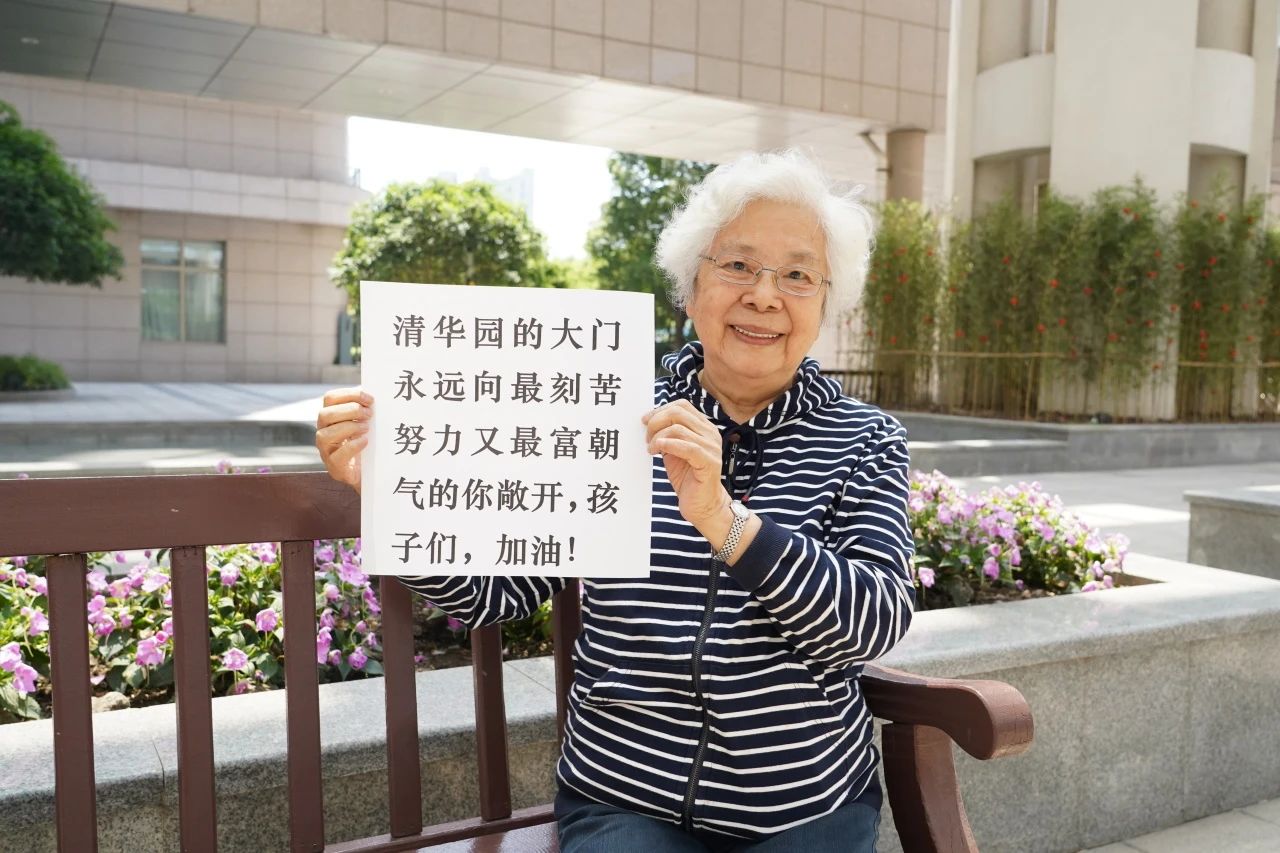 清华园的大门
永远向最刻苦
努力又最富朝
气的你敞开，孩
子们，加油！